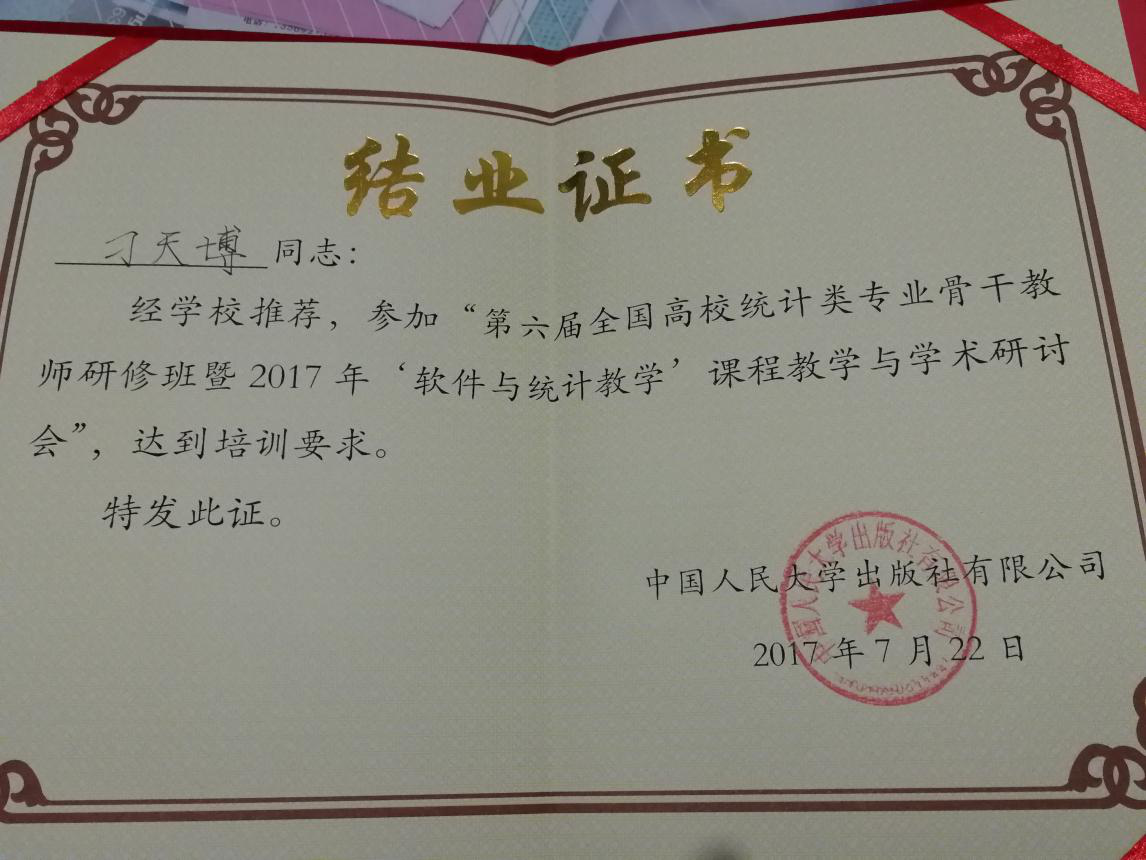 结业证书
刁天博 同志：
经学校推荐，参加“第六届全国高校统计类专业骨干教
师研修班暨 2017 年‘软件与统计教学’课程教学与学术研讨
会”，达到培训要求。
特发此证。
中国人民大学出版社有限公司
2017 年 7 月 22 日
中国人民大学出版社有限公司